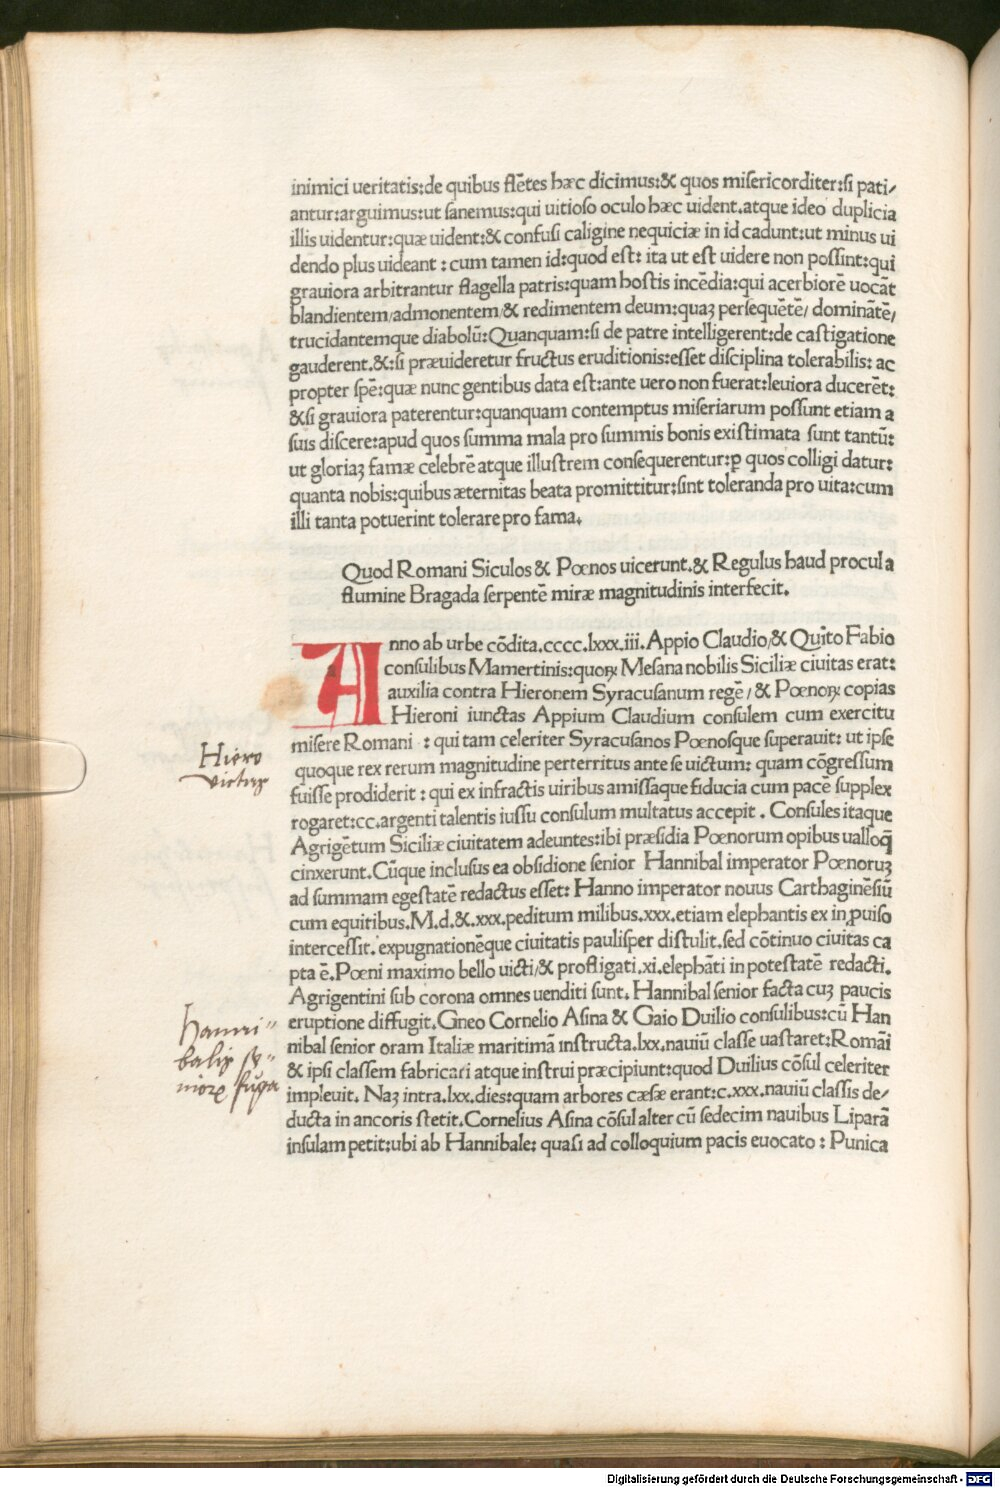 inimici ueritatis:de quibus flētes hæc dicimus:& quos miſericorditer:ſi pati/
antur:arguimus:ut ſanemus:qui uitioſo oculo hæc uident.atque ideo duplicia
illis uidentur:quæ uident:& confuſi caligine nequiciæ in id cadunt:ut minus ui
dendo plus uideant : cum tamen id:quod eſt: ita ut eſt uidere non poſſint:qui
grauiora arbitrantur flagella patris:quam hoſtis incēdia:qui acerbiorē uocāt
blandientem/admonentem/& redimentem deum:quaꝫ perſequētē/ dominātē/
trucidantemque diabolū:Quanquam:ſi de patre intelligerent:de caſtigatione
gauderent.&:ſi præuideretur fructus eruditionis:eſſet diſciplina tolerabilis: ac
propter ſpē:quæ nunc gentibus data eſt:ante uero non fuerat:leuiora ducerēt:
&ſi grauiora paterentur:quanquam contemptus miſeriarum poſſunt etiam a
ſuis diſcere:apud quos ſumma mala pro ſummis bonis exiſtimata ſunt tantū:
ut gloriaꝫ famæ celebrē atque illuſtrem conſequerentur:ꝑ quos colligi datur:
quanta nobis:quibus æternitas beata promittitur:ſint toleranda pro uita:cum
illi tanta potuerint tolerare pro fama.
Quod Romani Siculos & Pœnos uicerunt.& Regulus haud procul a
flumine Bragada ſerpentē miræ magnitudinis interfecit.
Anno ab urbe cōdita.cccc.lxxx.iii.Appio Claudio/& Quīto Fabio
conſulibus Mamertinis:quoꝝ Meſana nobilis Siciliæ ciuitas erat:
auxilia contra Hieronem Syracuſanum regē/ & Pœnoꝝ copias
Hieroni iunctas Appium Claudium conſulem cum exercitu
miſere Romani : qui tam celeriter Syracuſanos Pœnoſque ſuperauit: ut ipſe
quoque rex rerum magnitudine perterritus ante ſe uictum: quam cōgreſſum
fuiſſe prodiderit : qui ex infractis uiribus amiſſaque fiducia cum pacē ſupplex
rogaret:cc.argenti talentis iuſſu conſulum multatus accepit . Conſules itaque
Hiero
victus
Agrigētum Siciliæ ciuitatem adeuntes:ibi præſidia Pœnorum opibus ualloq̄
cinxerunt.Cūque incluſus ea obſidione ſenior Hannibal imperator Pœnoruꝫ
ad ſummam egeſtatē redactus eſſet: Hanno imperator nouus Carthaginēſiū
cum equitibus.M.d.&.xxx.peditum milibus.xxx.etiam elephantis ex inꝓuiſo
interceſſit.expugnationēque ciuitatis pauliſper diſtulit.ſed cōtinuo ciuitas ca
pta ē.Pœni maximo bello uicti/& profligati.xi.elephāti in poteſtatē redacti.
Agrigentini ſub corona omnes uenditi ſunt. Hannibal ſenior facta cuꝫ paucis
eruptione diffugit.Gneo Cornelio Aſina & Gaio Duilio conſulibus:cū Han
nibal ſenior oram Italiæ maritimā inſtructa.lxx.nauiū claſſe uaſtaret:Romāi
& ipſi claſſem fabricari atque inſtrui præcipiunt:quod Duilius cōſul celeriter
impleuit. Naꝫ intra.lxx.dies:quam arbores cæſæ erant:c.xxx.nauiū claſſis de/
ducta in ancoris ſtetit.Cornelius Aſina cōſul alter cū ſedecim nauibus Liparā
inſulam petit:ubi ab Hannibale: quaſi ad colloquium pacis euocato : Punica
Hanni=
balis se=
nioris fuga
Digitalisierung gefördert durch die Deutsche Forschungsgemeinschaft - DFG